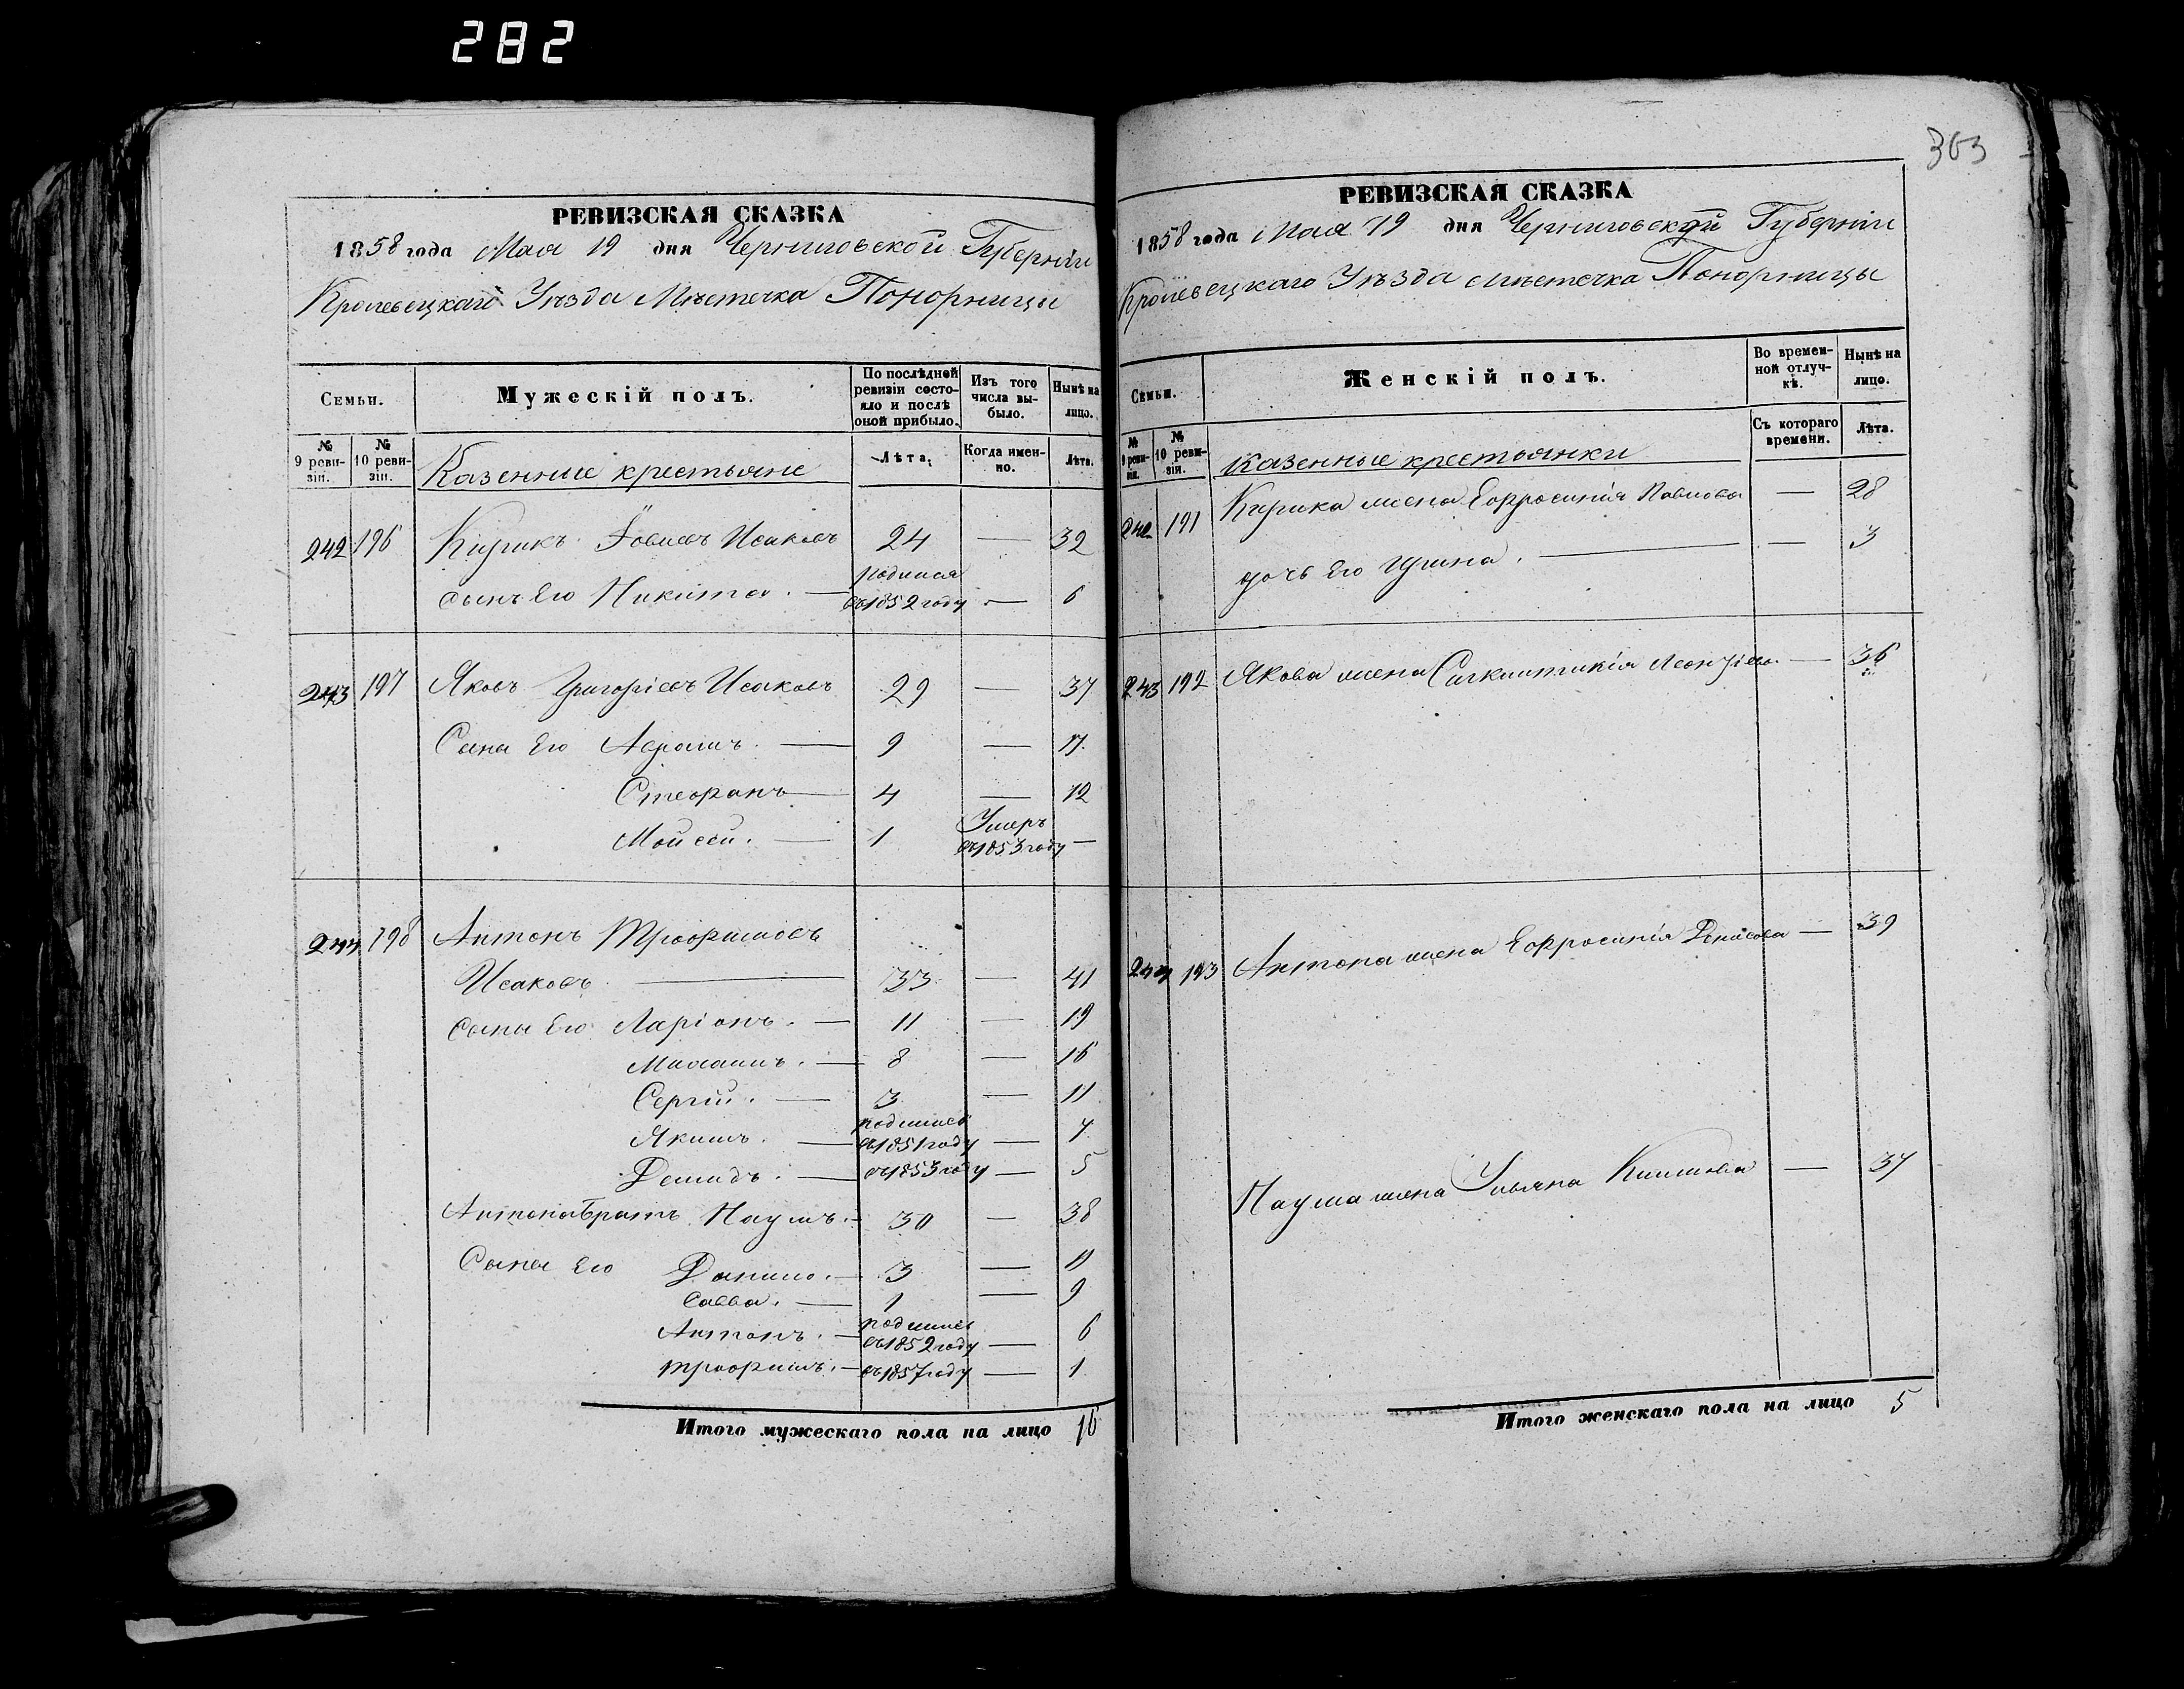 282
363
РЕВИЗСКАЯ СКАЗКА
1858 года Мая 19 дня Черниговской Губерніи
Кролевецкаго Уѣзда Мѣстечка Понорницы
Семьи.
Мужескій полъ.
По послѣдней ревизіи состояло и послѣ оной прибыло.
Изъ того числа выбыло.
Нынѣ на лицо.
№ 9 ревизіи.
№ 10 ревизіи.
Казенные крестьяне
Лѣта.
Когда именно.
Лѣта.
242 196 Кирикъ Исаковъ 24 — 32
сынъ Его Никита. — родился въ 1852 году — 6
243 197 Яковъ Григоріевъ Исаковъ 29 — 37
Сыны Его Аврамъ. — 9 — 17
Стефанъ — 4 — 12
Мойсей. — 1 Умеръ въ 1853 году —
244 198 Антонъ Трофимовъ
Исаковъ — 33 — 41
Сыны Его Ларіонъ. — 11 — 19
8 — 16
Сергій. — 3 — 11
Якимъ. — родились въ 1851 году — 7
Демидъ. — въ 1853 году — 5
Антона Братъ Наумъ. — 30 — 38
Сыны Его Данило. — 3 — 11
Савва. — 1 — 9
Антонъ. — родились въ 1852 году — 6
Трофимъ. — въ 1857 году — 1
Итого мужескаго пола на лицо 16
РЕВИЗСКАЯ СКАЗКА
1858 года Мая 19 дня Черниговской Губерніи
Кролевецкаго Уѣзда Мѣстечка Понорницы
Семьи.
Женскій полъ.
Во временной отлучкѣ.
Нынѣ на лицо.
№ 9 ревизіи.
№ 10 ревизіи.
Казенные крестьянки
Съ котораго времени.
Лѣта.
242 191 Кирика жена Ефросинія Павлова — 28
дочь Его Ирина. — — 3
243 192 Якова жена — 36
244 193 Антона жена Ефросинія Денисова — 39
Наума жена Ульяна Климова — 37
Итого женскаго пола на лицо 5